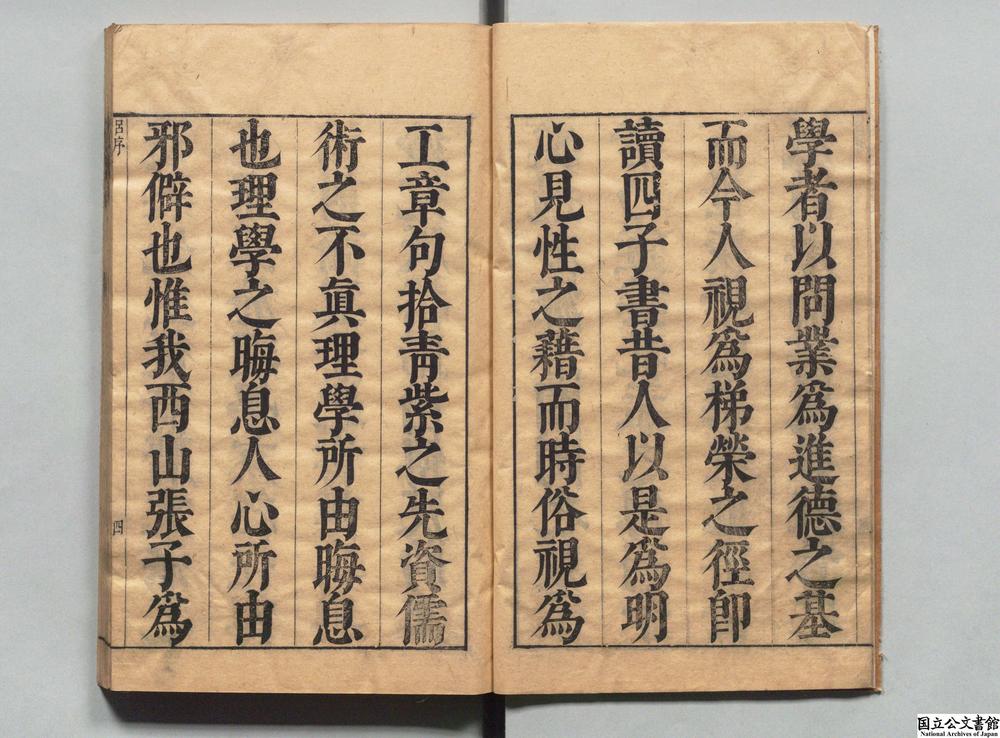 學者以問業爲進德之基
而今人視爲梯榮之徑卽
讀四子書昔人以是爲明
心見性之藉而時俗視爲
工章句拾青紫之先資儒
術之不眞理學所由晦息
也理學之晦息人心所由
邪僻也惟我西山張子爲
呂序
四
国立公文書館
National Archives of Japan